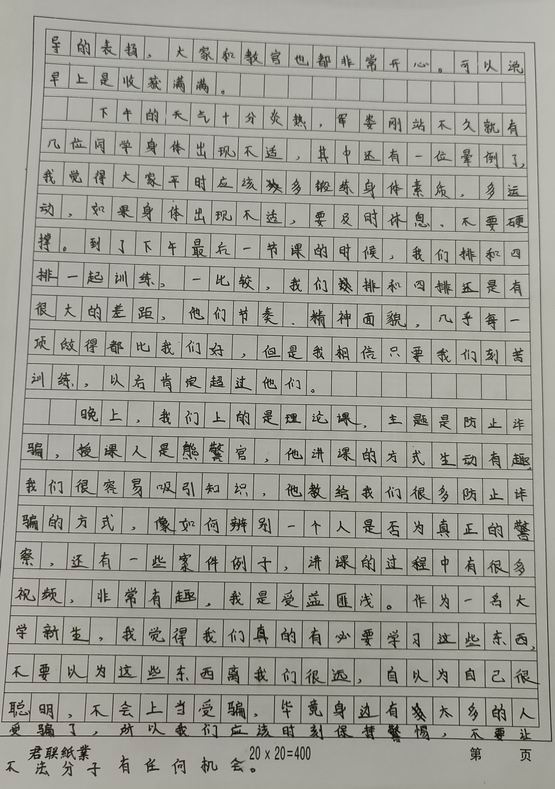 导的表扬，大家和教官也都非常开心。可以说
早上是收获满满。
下午的天气十分炎热，军姿刚站不久就有
几位同学身体出现不适，其中还有一位晕倒了，
我觉得大家平时应该多锻练身体素质，多运
动，如果身体出现不适，要及时休息，不要硬
撑。到了下午最后一节课的时候，我们排和四
排一起训练，一比较，我们排和四排还是有
很大的差距，他们节奏、精神面貌，几乎每一
项做得都比我们好，但是我相信只要我们刻苦
训练，以后肯定超过他们。
晚上，我们上的是理论课，主题是防止诈
骗，授课人是熊警官，他讲课的方式生动有趣，
我们很容易吸引知识，他教给我们很多防止诈
骗的方式，像如何辨别一个人是否为真正的警
察，还有一些案件例子，讲课的过程中有很多
视频，非常有趣，我是受益匪浅。作为一名大
学新生，我觉得我们真的有必要学习这些东西，
不要以为这些东西离我们很远，自以为自己很
聪明，不会上当受骗，毕竟身边有太多的人
受骗了，所以我们应该时刻保持警惕，不要让
君联紙業 20 x 20=400 第 页
不法分子有任何机会。